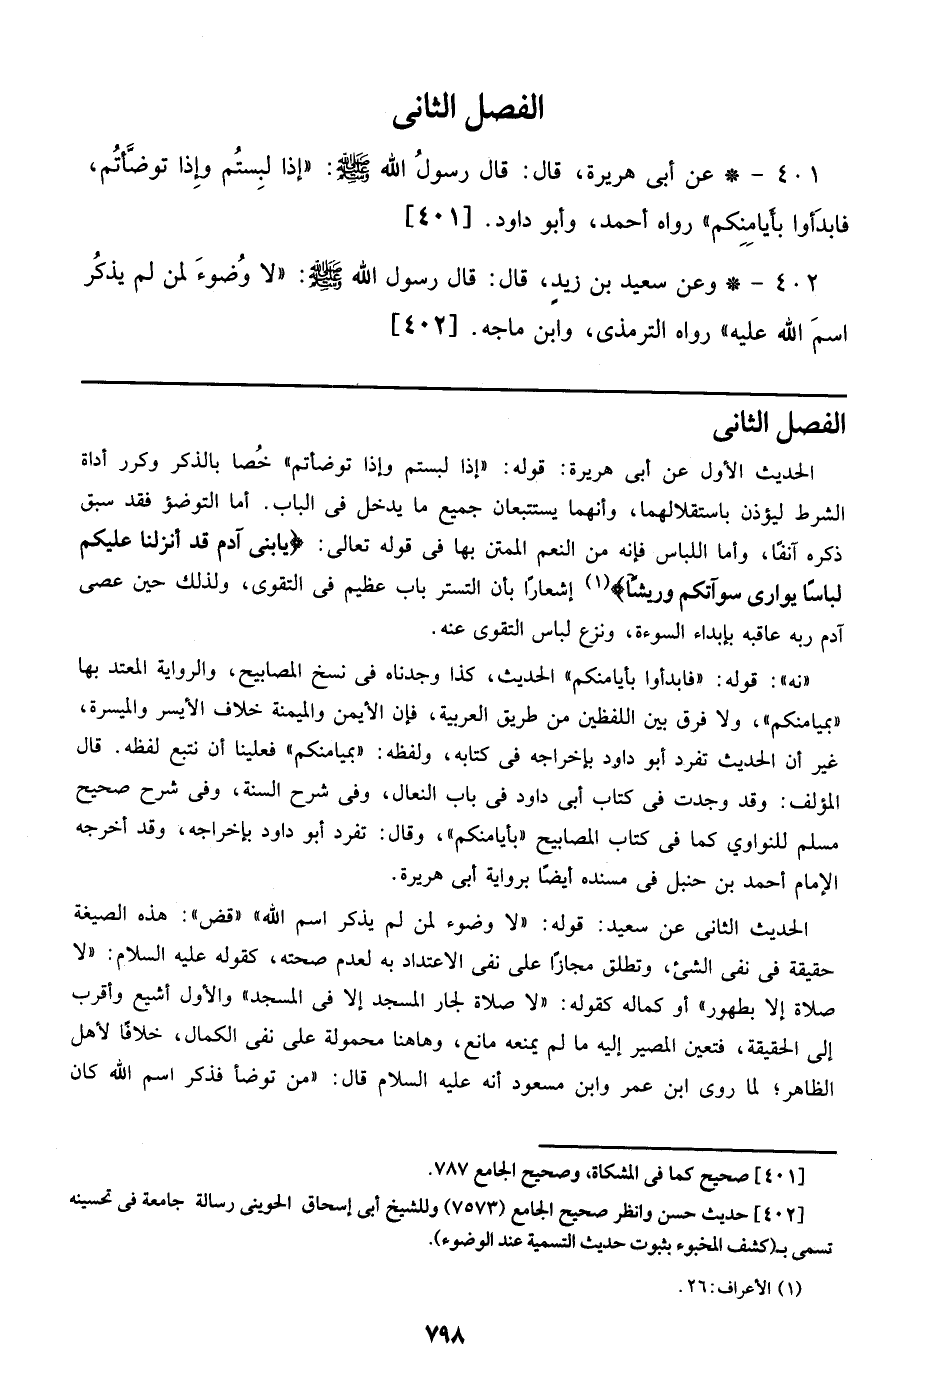 الفصل الثانى
٤٠١ - * عن أبى هريرة، قال: قال رسولُ الله ﷺ: «إذا لبِستُم وإِذا توضَّأتُم،
فابدَأوا بأَيامِنِكم» رواه أحمد، وأبو داود. [٤٠١]
٤٠٢ - * وعن سعيد بن زيدٍ، قال: قال رسول الله ﷺ: «لا وُضوءَ لمن لم يذكُر
اسمَ الله عليه» رواه الترمذى، وابن ماجه. [٤٠٢]
الفصل الثانى
الحديث الأول عن أبى هريرة: قوله: «إذا لبستم وإذا توضأتم» خُصا بالذكر وكرر أداة
الشرط ليؤذن باستقلالهما، وأنهما يستتبعان جميع ما يدخل فى الباب. أما التوضؤ فقد سبق
ذكره آنفًا، وأما اللباس فإنه من النعم الممتن بها فى قوله تعالى: ﴿يابنى آدم قد أنزلنا عليكم
لباسًا يوارى سوآتكم وريشًا﴾(١) إشعارًا بأن التستر باب عظيم فى التقوى، ولذلك حين عصى
آدم ربه عاقبه بإبداء السوءة، ونزع لباس التقوى عنه.
«نه»: قوله: «فابدأوا بأيامنكم» الحديث، كذا وجدناه فى نسخ المصابيح، والرواية المعتد بها
«بميامنكم»، ولا فرق بين اللفظين من طريق العربية، فإن الأيمن والميمنة خلاف الأيسر والميسرة،
غير أن الحديث تفرد أبو داود بإخراجه فى كتابه، ولفظه: «بميامنكم» فعلينا أن نتبع لفظه. قال
المؤلف: وقد وجدت فى كتاب أبى داود فى باب النعال، وفى شرح السنة، وفى شرح صحيح
مسلم للنواوي كما فى كتاب المصابيح «بأيامنكم»، وقال: تفرد أبو داود بإخراجه، وقد أخرجه
الإمام أحمد بن حنبل فى مسنده أيضًا برواية أبى هريرة.
الحديث الثانى عن سعيد: قوله: «لا وضوء لمن لم يذكر اسم الله» «قض»: هذه الصيغة
حقيقة فى نفى الشئ، وتطلق مجازًا على نفى الاعتداد به لعدم صحته، كقوله عليه السلام: «لا
صلاة إلا بطهور» أو كماله كقوله: «لا صلاة لجار المسجد إلا فى المسجد» والأول أشيع وأقرب
إلى الحقيقة، فتعين المصير إليه ما لم يمنعه مانع، وهاهنا محمولة على نفى الكمال، خلافًا لأهل
الظاهر؛ لما روى ابن عمر وابن مسعود أنه عليه السلام قال: «من توضأ فذكر اسم الله كان
[٤٠١] صحيح كما فى المشكاة، وصحيح الجامع ٧٨٧.
[٤٠٢] حديث حسن وانظر صحيح الجامع (٧٥٧٣) وللشيخ أبى إسحاق الحوينى رسالة جامعة فى تحسينه
تسمى بـ(كشف المخبوء بثبوت حديث التسمية عند الوضوء).
(١) الأعراف: ٢٦.
٧٩٨